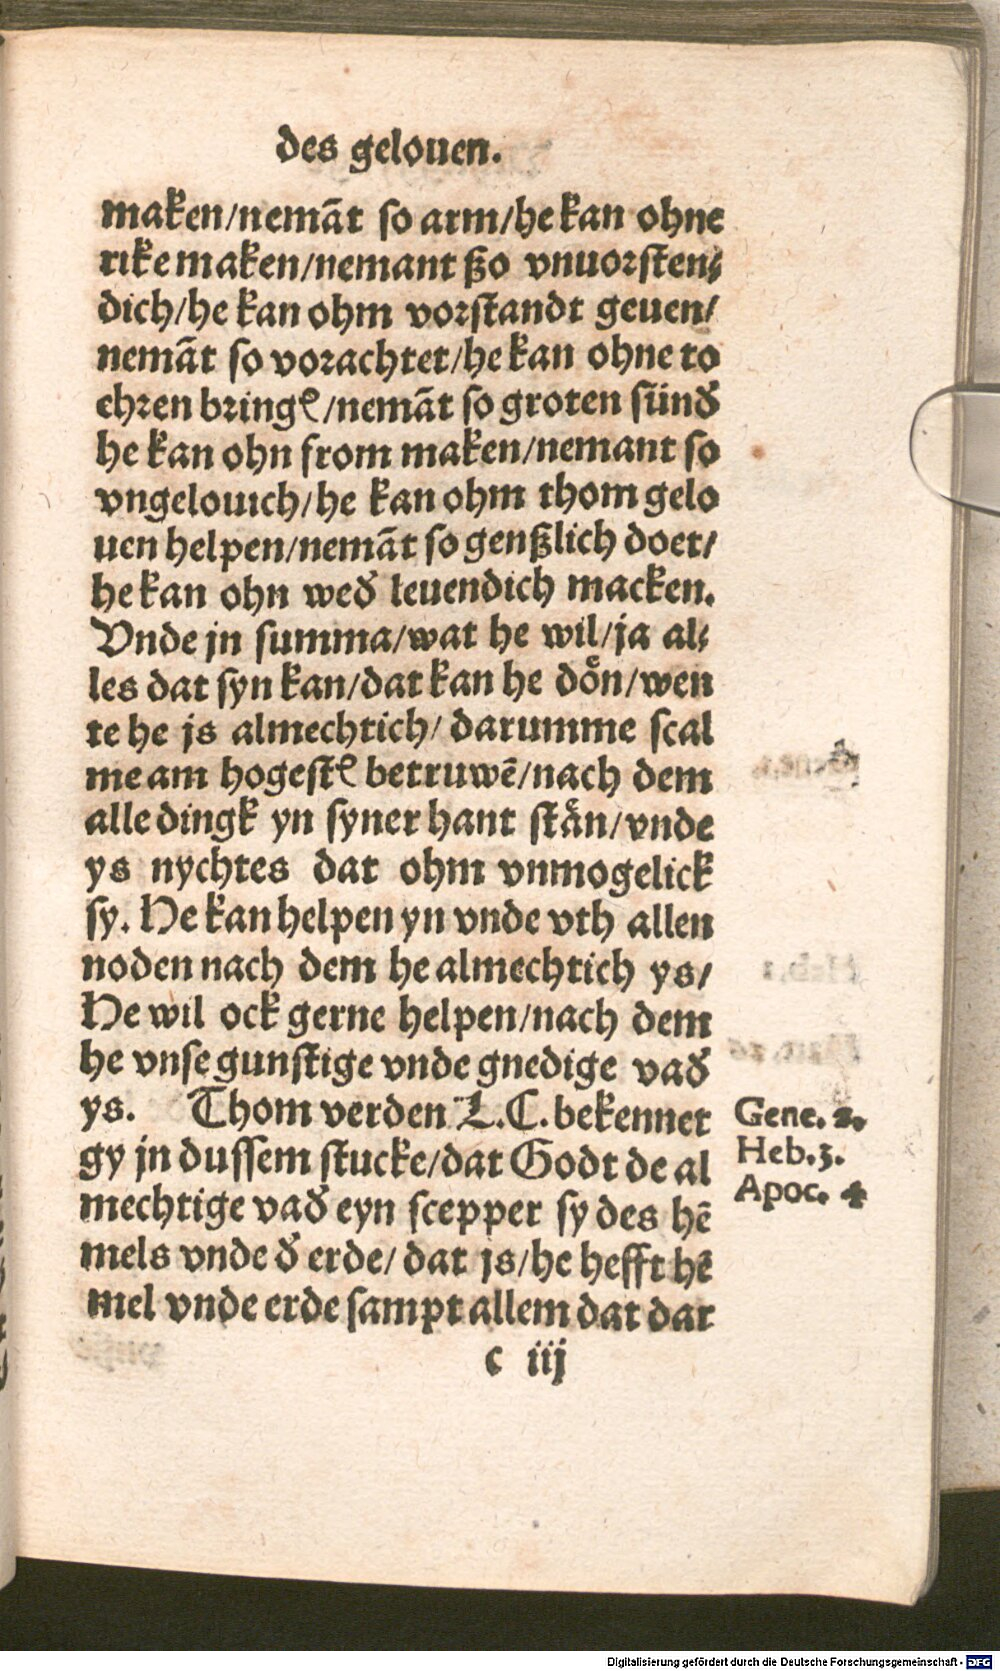 des gelouen.
maken/nemãt so arm/he kan ohne
rike maken/nemant ßo vnuorsten⸗
dich/he kan ohm vorstandt geuen/
nemãt so vorachtet/he kan ohne to
ehren bringẽ/nemãt so groten sünđ
he kan ohn from maken/nemant so
vngelouich/he kan ohm thom gelo
uen helpen/nemãt so genßlich doet/
he kan ohn weđ leuendich macken.
Vnde jn summa/wat he wil/ja al⸗
les dat syn kan/dat kan he doͤn/wen
te he js almechtich/darumme scal
me am hogestẽ betruwẽ/nach dem
alle dingk yn syner hant staͤn/vnde
ys nychtes dat ohm vnmogelick
sy. He kan helpen yn vnde vth allen
noden nach dem he almechtich ys/
He wil ock gerne helpen/nach dem
he vnse gunstige vnde gnedige vađ
ys. Thom verden L.C. bekennet
gy jn dussem stucke/dat Godt de al
mechtige vađ eyn scepper sy des hẽ
mels vnde đ erde/dat js/he hefft hẽ
mel vnde erde sampt allem dat dar
Gene. 2.
Heb.3.
Apoc. 4
c iij
Digitalisierung gefördert durch die Deutsche Forschungsgemeinschaft - DFG